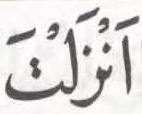 اَنْزَلْتَ